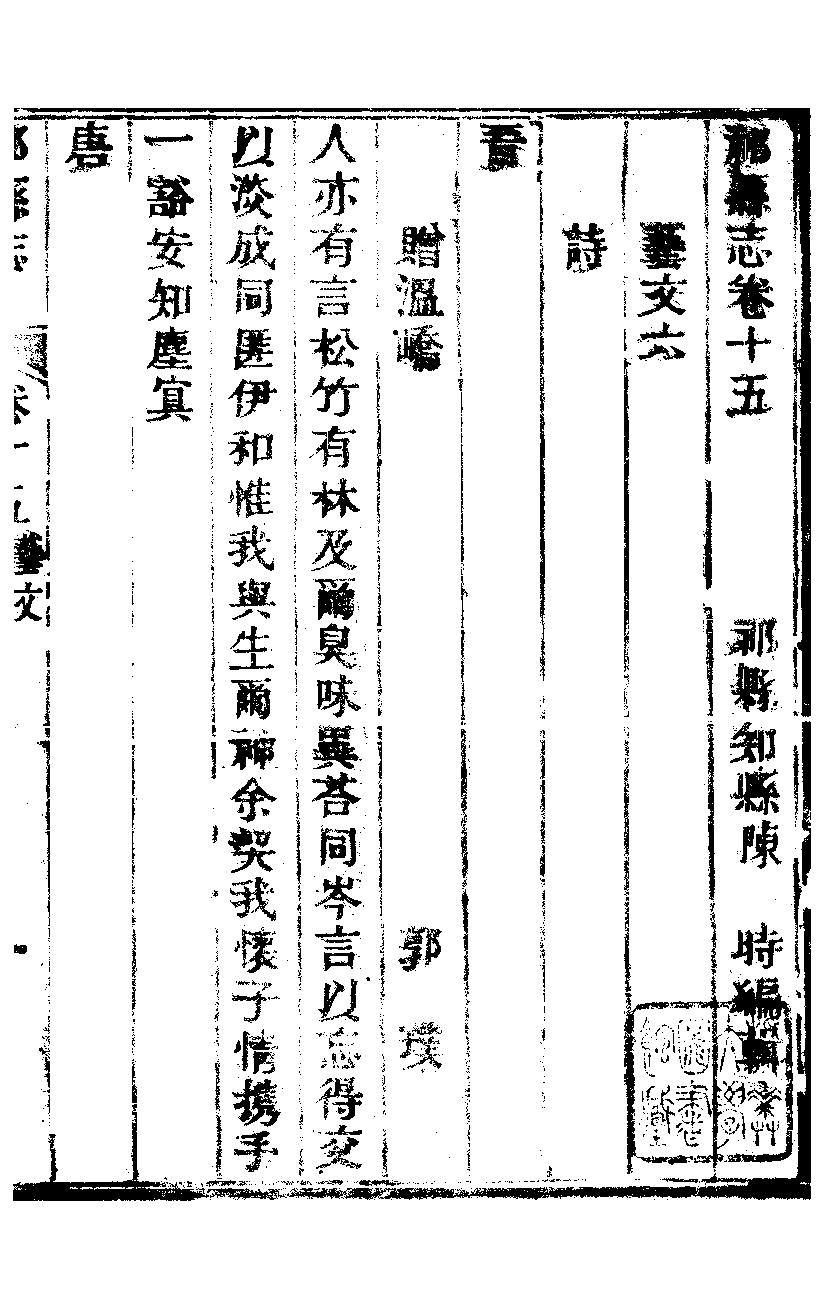 祁縣志卷十五 祁縣知縣陳 時編輯
藝文六
詩
晉
贈溫嶠 郭 璞
人亦有言松竹有林及爾臭味異苔同岑言以忘得交
以淡成同匪伊和惟我與生爾神余契我懷子情携手
一豁安知塵寘
唐
祁縣志 卷十五藝文